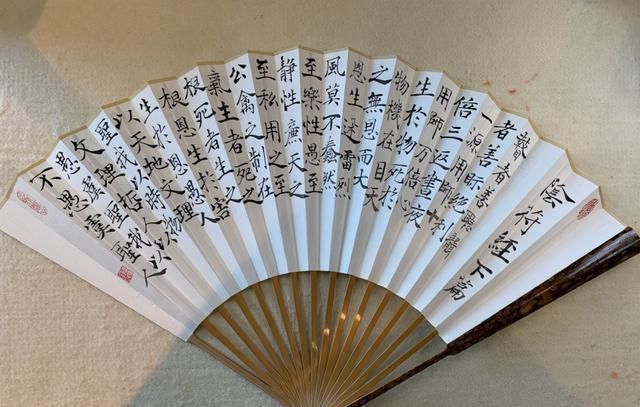 陰符經下篇
瞽者善聽聾
者善眂絕利
一源用師十
倍三返晝夜
用師万倍心
生於物死於
物機在目天
之無恩而大
恩生迅雷烈
風莫不蠢然
至樂性愚至
靜性廉天之
至私用之至
公禽之制在
氣生者死之
根死者生之
根恩生於害
生於恩愚人
以天地文理
聖我以時物
文理聖人以
愚虞聖我以
不愚虞聖